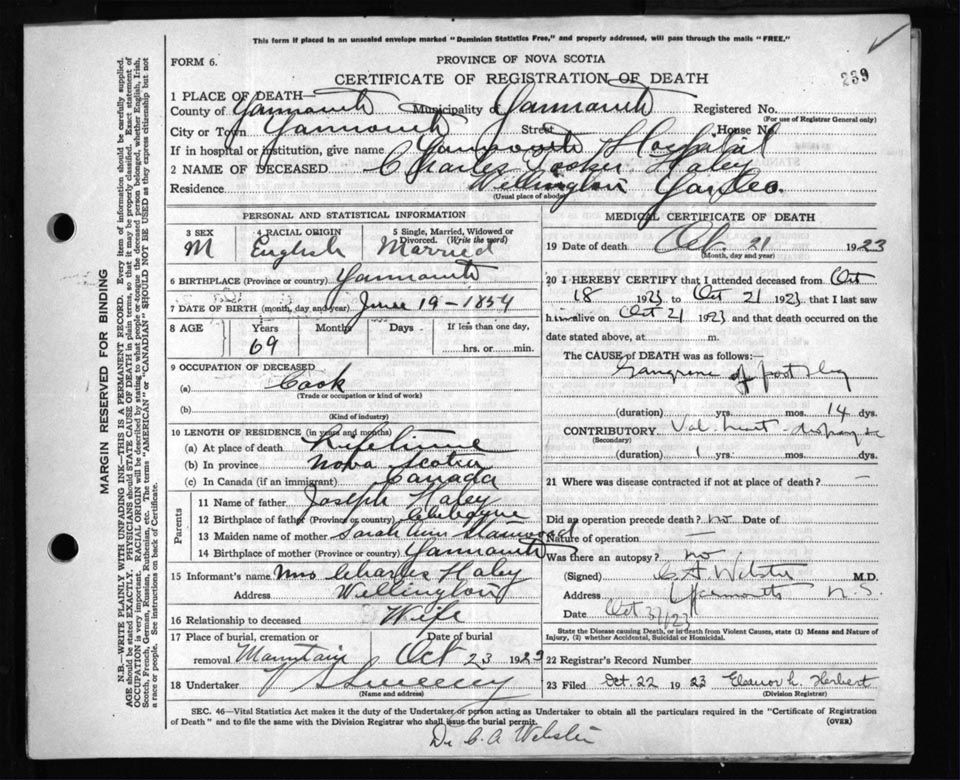 This form if placed in an unsealed envelope marked "Dominion Statistics Free," and properly addressed, will pass through the mails "FREE."
FORM 6. PROVINCE OF NOVA SCOTIA
CERTIFICATE OF REGISTRATION OF DEATH
239
1 PLACE OF DEATH—
County of Yarmouth Municipality of Yarmouth Registered No.
(For use of Registrar General only)
City or Town Yarmouth Street House No.
If in hospital or institution, give name Yarmouth Hospital
2 NAME OF DECEASED Charles Haley
Residence Wellington Yar. Co.
(Usual place of abode)
PERSONAL AND STATISTICAL INFORMATION
3 SEX 4 RACIAL ORIGIN 5 Single, Married, Widowed or Divorced. (Write the word)
M English Married
6 BIRTHPLACE (Province or country) Yarmouth
7 DATE OF BIRTH (month, day and year) June 19-1854
8 AGE Years Months Days If less than one day,
69 hrs. or min.
9 OCCUPATION OF DECEASED
(a) Cook
(Trade or occupation or kind of work)
(b)
(Kind of industry)
10 LENGTH OF RESIDENCE (in years and months)
(a) At place of death Lifetime
(b) In province Nova Scotia
(c) In Canada (if an immigrant) Canada
Parents
11 Name of father Joseph Haley
12 Birthplace of father (Province or country)
13 Maiden name of mother Sarah Ann
14 Birthplace of mother (Province or country) Yarmouth
15 Informant's name Mrs Charles Haley
Address Wellington
16 Relationship to deceased Wife
17 Place of burial, cremation or Date of burial
removal Mountain Oct 23 1923
18 Undertaker Sweeny
(Name and address)
MEDICAL CERTIFICATE OF DEATH
19 Date of death Oct. 21 1923
(Month, day and year)
20 I HEREBY CERTIFY that I attended deceased from Oct
18 1923 to Oct 21 1923, that I last saw
him alive on Oct 21 1923 and that death occurred on the
date stated above, at m.
The CAUSE OF DEATH was as follows:—
Gangrene of foot & leg
(duration) yrs. mos. 14 dys.
CONTRIBUTORY Val. heart - dropsy
(Secondary)
(duration) 1 yrs. mos. dys.
21 Where was disease contracted if not at place of death? —
Did an operation precede death? no Date of
Nature of operation —
Was there an autopsy? no
(Signed) C A Webster M.D.
Address Yarmouth N.S.
Date Oct
State the Disease causing Death, or in death from Violent Causes, state (1) Means and Nature of
Injury, (2) whether Accidental, Suicidal or Homicidal.
22 Registrar's Record Number
23 Filed Oct. 22 1923 Eleanor L. Herbert
(Division Registrar)
SEC. 46—Vital Statistics Act makes it the duty of the Undertaker or person acting as Undertaker to obtain all the particulars required in the "Certificate of Registration
of Death" and to file the same with the Division Registrar who shall issue the burial permit. (OVER)
Dr C. A Webster
MARGIN RESERVED FOR BINDING
N.B.—WRITE PLAINLY WITH UNFADING INK—THIS IS A PERMANENT RECORD. Every item of information should be carefully supplied.
AGE should be stated EXACTLY. PHYSICIANS should STATE CAUSE OF DEATH in plain terms, so that it may be properly classified. Exact statement of
OCCUPATION is very important. RACIAL ORIGIN will be described by stating to what people or tongue the deceased person belonged, whether English, Irish,
Scotch, French, German, Russian, Ruthenian, etc. The terms "AMERICAN" or "CANADIAN" SHOULD NOT BE USED as they express citizenship but not
a race or people. See instructions on back of Certificate.